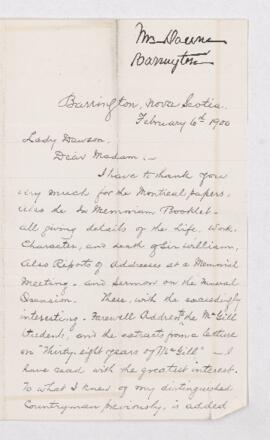 Mrs Downs
Barrington
Barrington, Nova Scotia.
February 6th 1900
Lady Dawson.
Dear Madam,—
I have to thank you
very much for the Montreal papers.
also the In Memoriam Booklet—
all giving details of the Life, Work,
Character, and death of Sir William,
Also Reports of Addresses at a Memorial
Meeting— and Sermon on the Funeral
Occasion. These, with the exceedingly
interesting— Farewell Address to the McGill
Students, and the extracts from a lecture
on "Thirty eight years of McGill"— I
have read with the greatest interest.
To what I knew of my distinguished
Countryman previously, is added